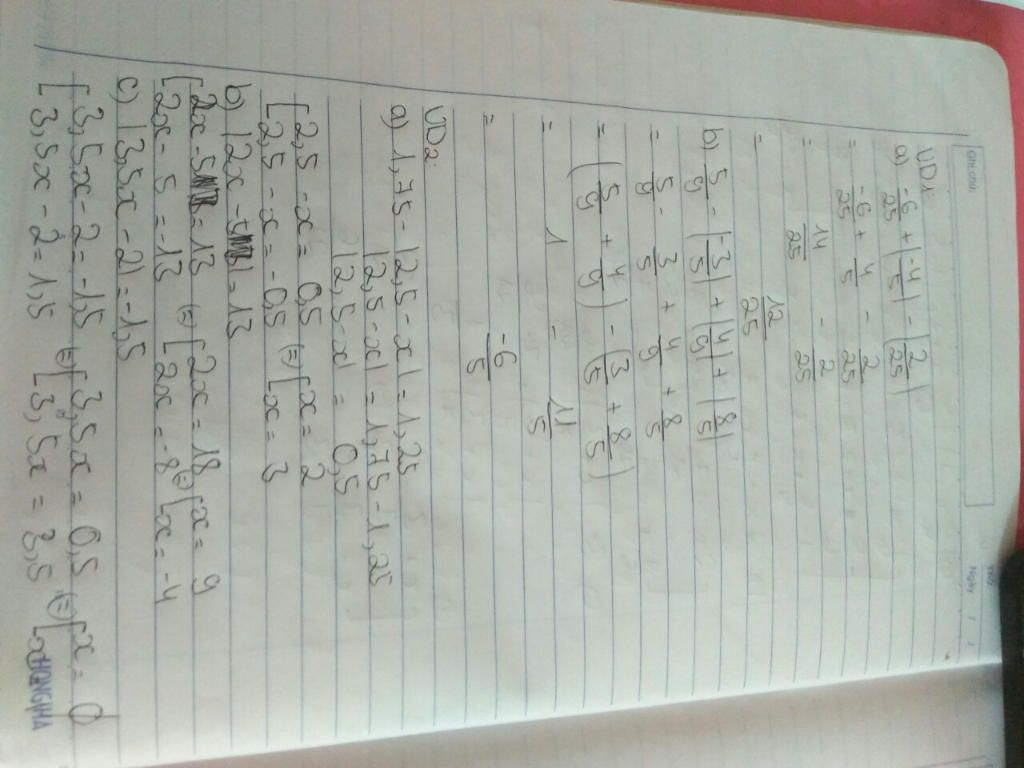 GHI CHÚ
Thứ
Ngày / /
VD1:
a) -6/25 + |-4/5| - |2/25|
= -6/25 + 4/5 - 2/25
= 14/25 - 2/25
= 12/25
b) 5/9 - |-3/5| + |4/9| + |8/5|
= 5/9 - 3/5 + 4/9 + 8/5
= (5/9 + 4/9) - (3/5 + 8/5)
= 1 - 11/5
= -6/5
VD2:
a) 1,75 - |2,5 - x| = 1,25
|2,5 - x| = 1,75 - 1,25
|2,5 - x| = 0,5
[2,5 - x = 0,5 ⇔ [x = 2
[2,5 - x = -0,5 [x = 3
b) |2x - 5| = 13
[2x - 5 = 13 ⇔ [2x = 18 [x = 9
[2x - 5 = -13 [2x = -8 ⇔ [x = -4
c) |3,5x - 2| = -1,5
[3,5x - 2 = -1,5 ⇔ [3,5x = 0,5 ⇔ [x = 0
[3,5x - 2 = 1,5 [3,5x = 3,5 [x =
HONG HA